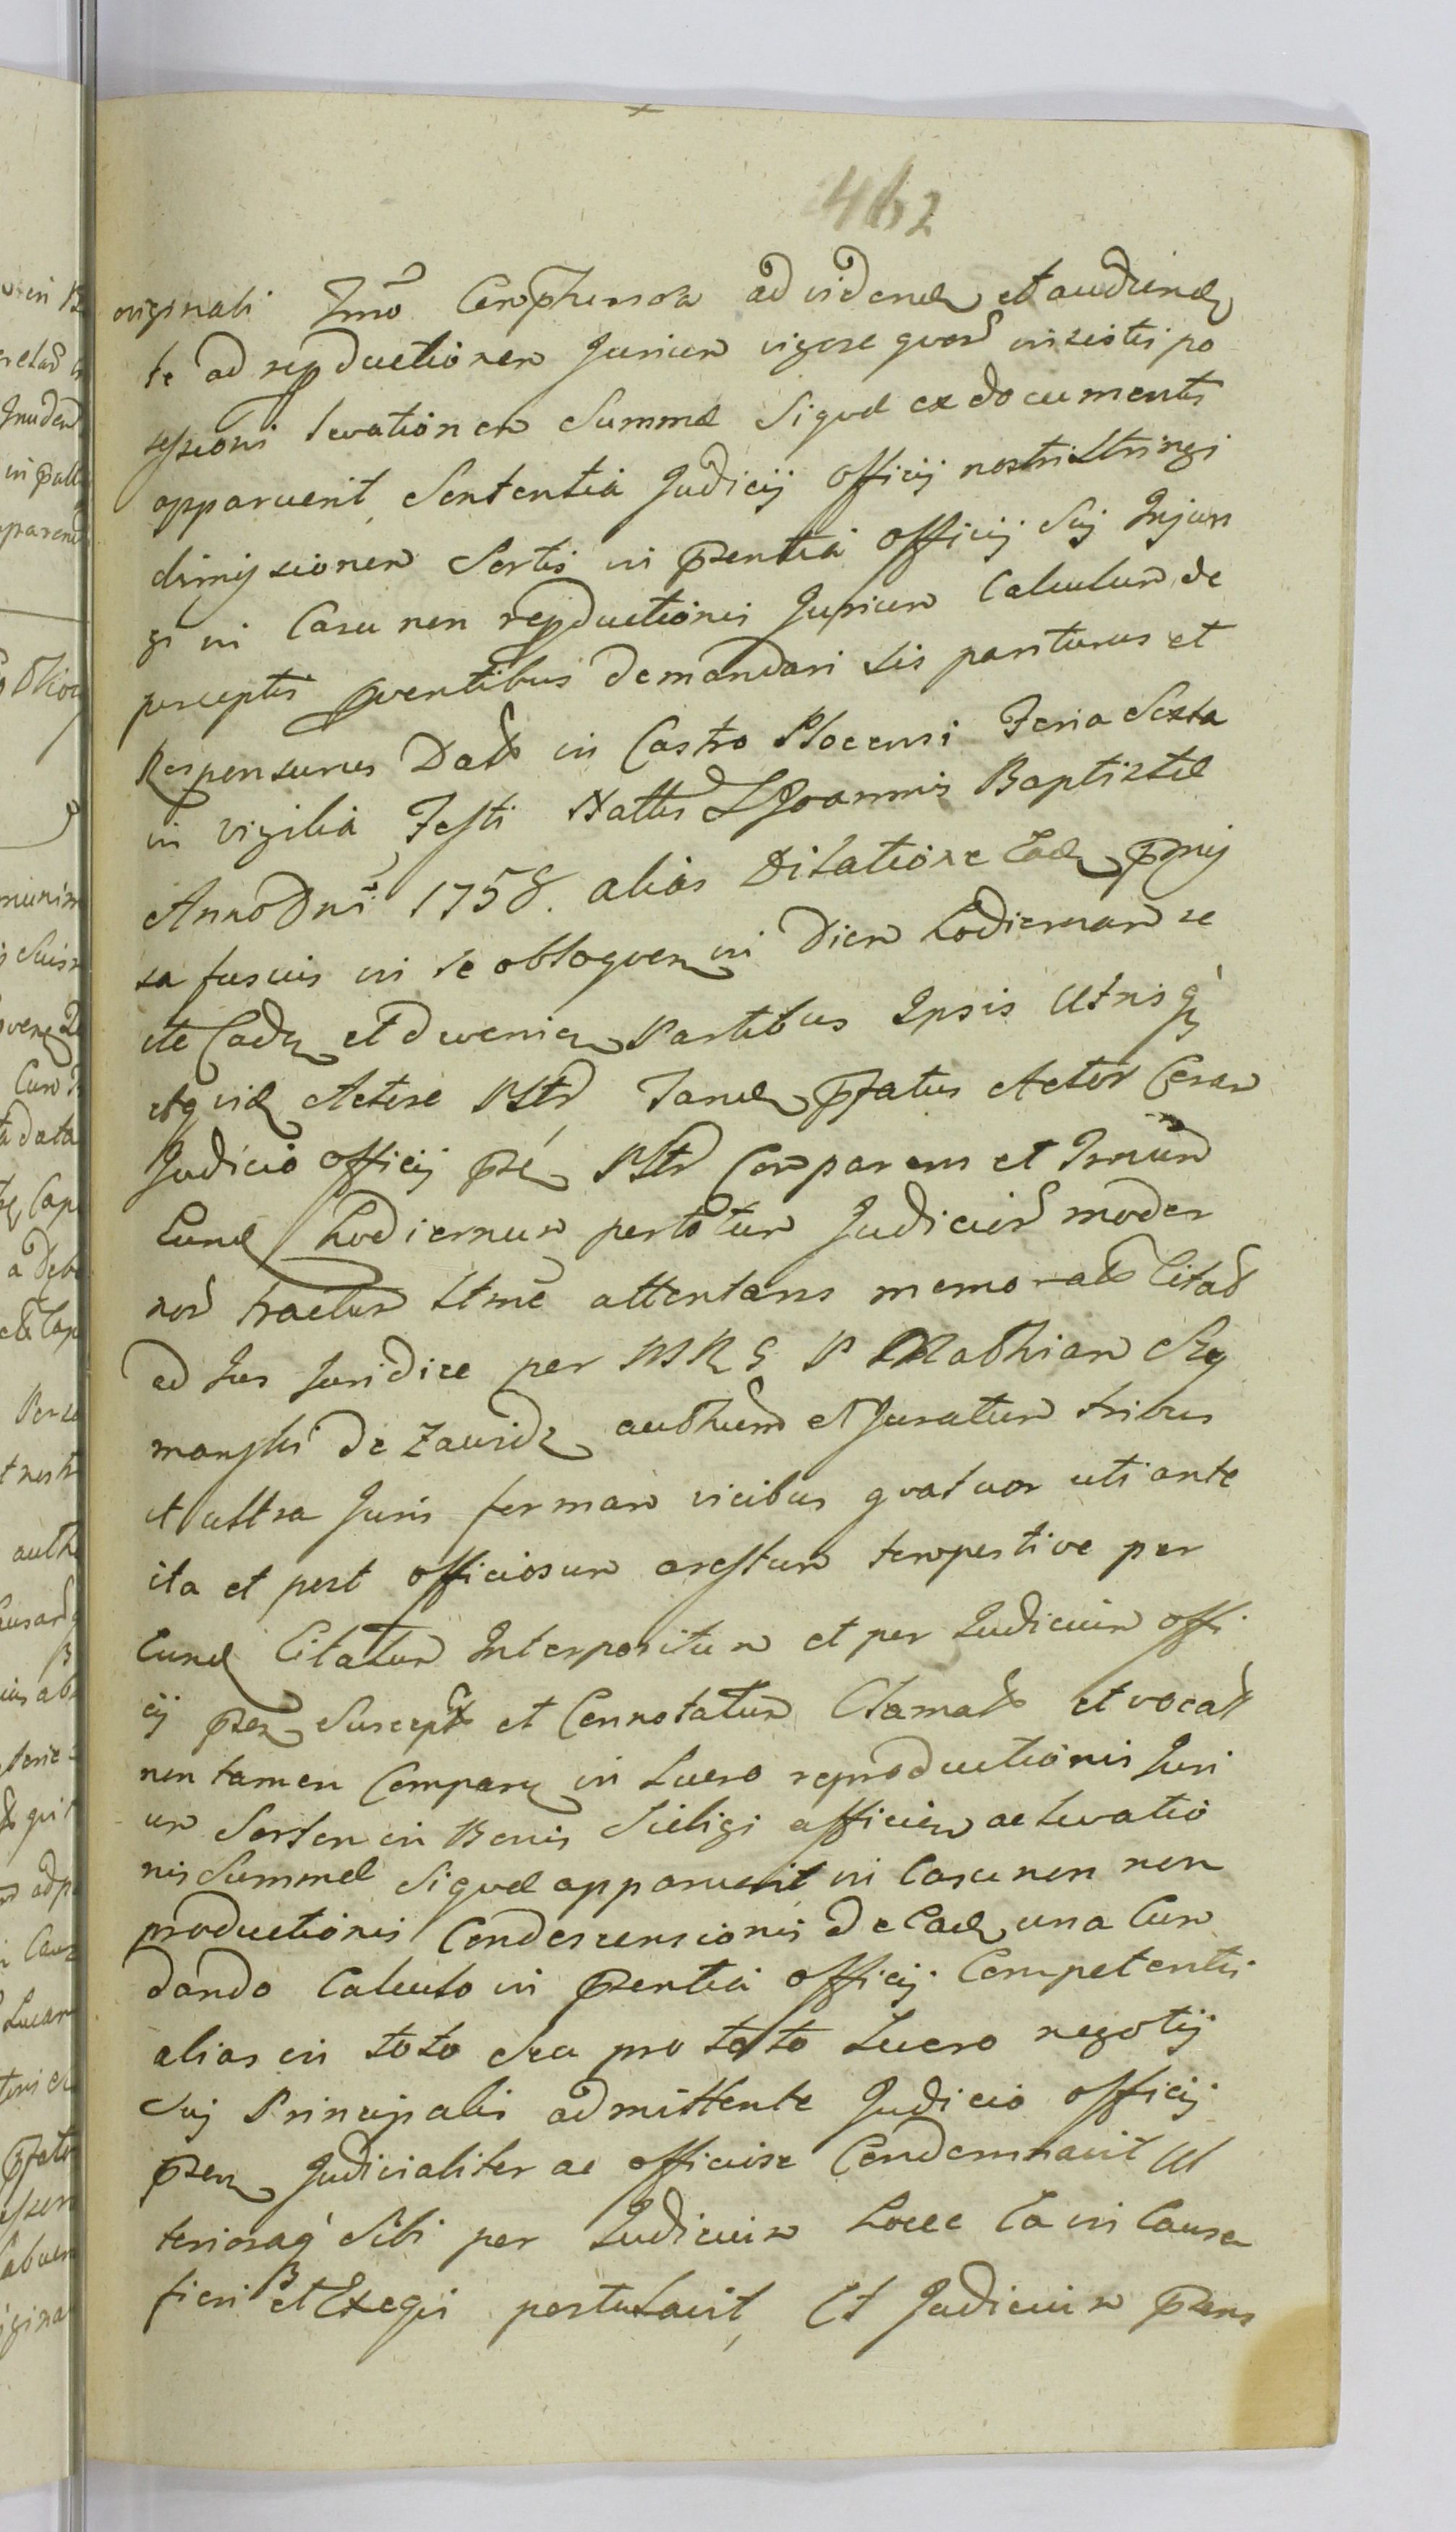 462
originali Imo Comphensa ad vidend et audiend
te ad repductionem Jurium vigore quor insistis po
ssessioni levationem Summæ Siquæ ex documentis
apparuerit, Sententia Judicij officij nostri Stringi
dimissionem Sortis in pzentia officij Suj Injun
gi in Casu non repductionis Jurium Calculum de
perceptis pventibus demandari sis pariturus et
Responsurus Datt in Castro Plocensi Feria Sexta
in vigilia Festi Nattis S Joannis Baptistæ
Anno Dni 1758. alias Dilatione Ead pmis
sa fusius in se obloquen in Diem hodiernum se
ite Cadn et dvenien Partibus Ipsis Utrisq
Atq vid Actore Pltr Tand pfatus Actor Coram
Judicio officij pze Pltr Comparens et Imum
Eund hodiernum pertotum Judicior moder
nor tractum Ltme attentans memoratt Citatt
ad Jus Juridice per M R G P Mathiam Szy
manski de Zawidz authum et Juratum tribus
et ultra Juris formam vicibus quatuor uti ante
ita et post officiosum arestum tempestive per
Eund Citatum Interpositum et per Judicium offi
cij pzen Suscept et Connotatum Clamatt et vocatt
non tamen Comparen in Lucro reproductionis Juri
um Sortem in Bonis Sieligi afficien ac levatio
nis Summæ Siquæ apparuerit in Casu non
productionis Condescensionis de Ead una Cum
dando Calculo in pzentia officij Competentis
alias in toto Seu pro toto Lucro negotij
Suj Principalis admittente Judicio officij
pzen Judicialiter ac officiose Condemnavit Ul
terioraq Sibi per Judicium hocce Ea in Causa
fieri et Exequi postulavit, Et Judicium pzens